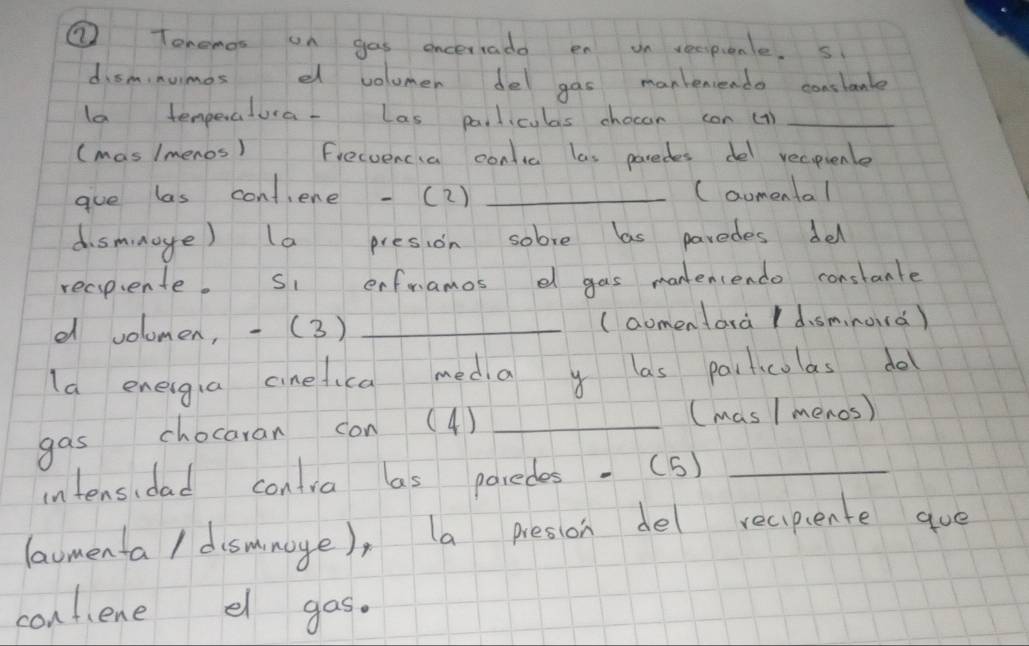 ② Tenemos un gas encerrado en un recipiente. Si
disminuimos el volumen del gas manteniendo constante
la temperatura - Las particulas chocan con (1) ________
(mas / menos) Frecuencia contra las paredes del recipiente
que las contiene - (2) ____________ (aumental
disminuye) la presión sobre las paredes del
recipiente. Si enfriamos el gas manteniendo constante
el volumen, - (3) ____________ (aumentará / disminuirá)
la energia cinetica media y las particulas del
gas chocaran con (4) __________ (mas / menos)
intensidad contra las paredes - (5) __________
(aumenta / disminuye), la presión del recipiente que
contiene el gas.